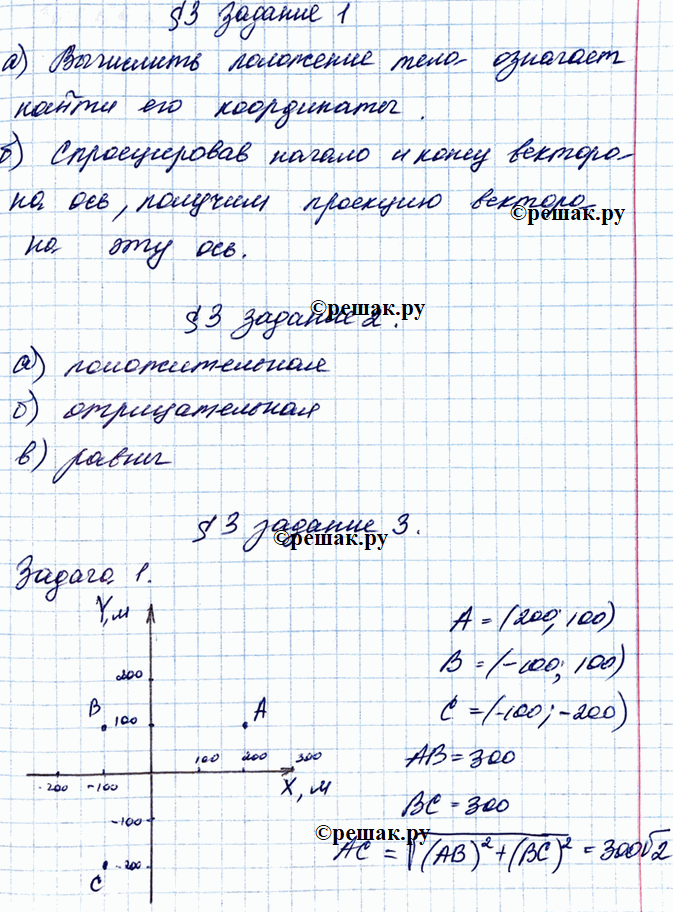 §3 Задание 1
а) Вычислить положение тела означает
найти его координаты.
б) Спроецировав начало и конец вектора
на ось, получим проекцию вектора
©решак.ру
на эту ось.
©решак.ру
§3 задание 2.
а) положительная
б) отрицательная
в) равны
§3 задание 3.
©решак.ру
Задача 1.
Y, м
A = (200; 100)
200
B = (-100; 100)
B 100 A
C = (-100; -200)
100 200 300
AB = 300
-200 -100 X, м
BC = 300
-100
©решак.ру
AC = √(AB)² + (BC)² = 300√2
-200
C